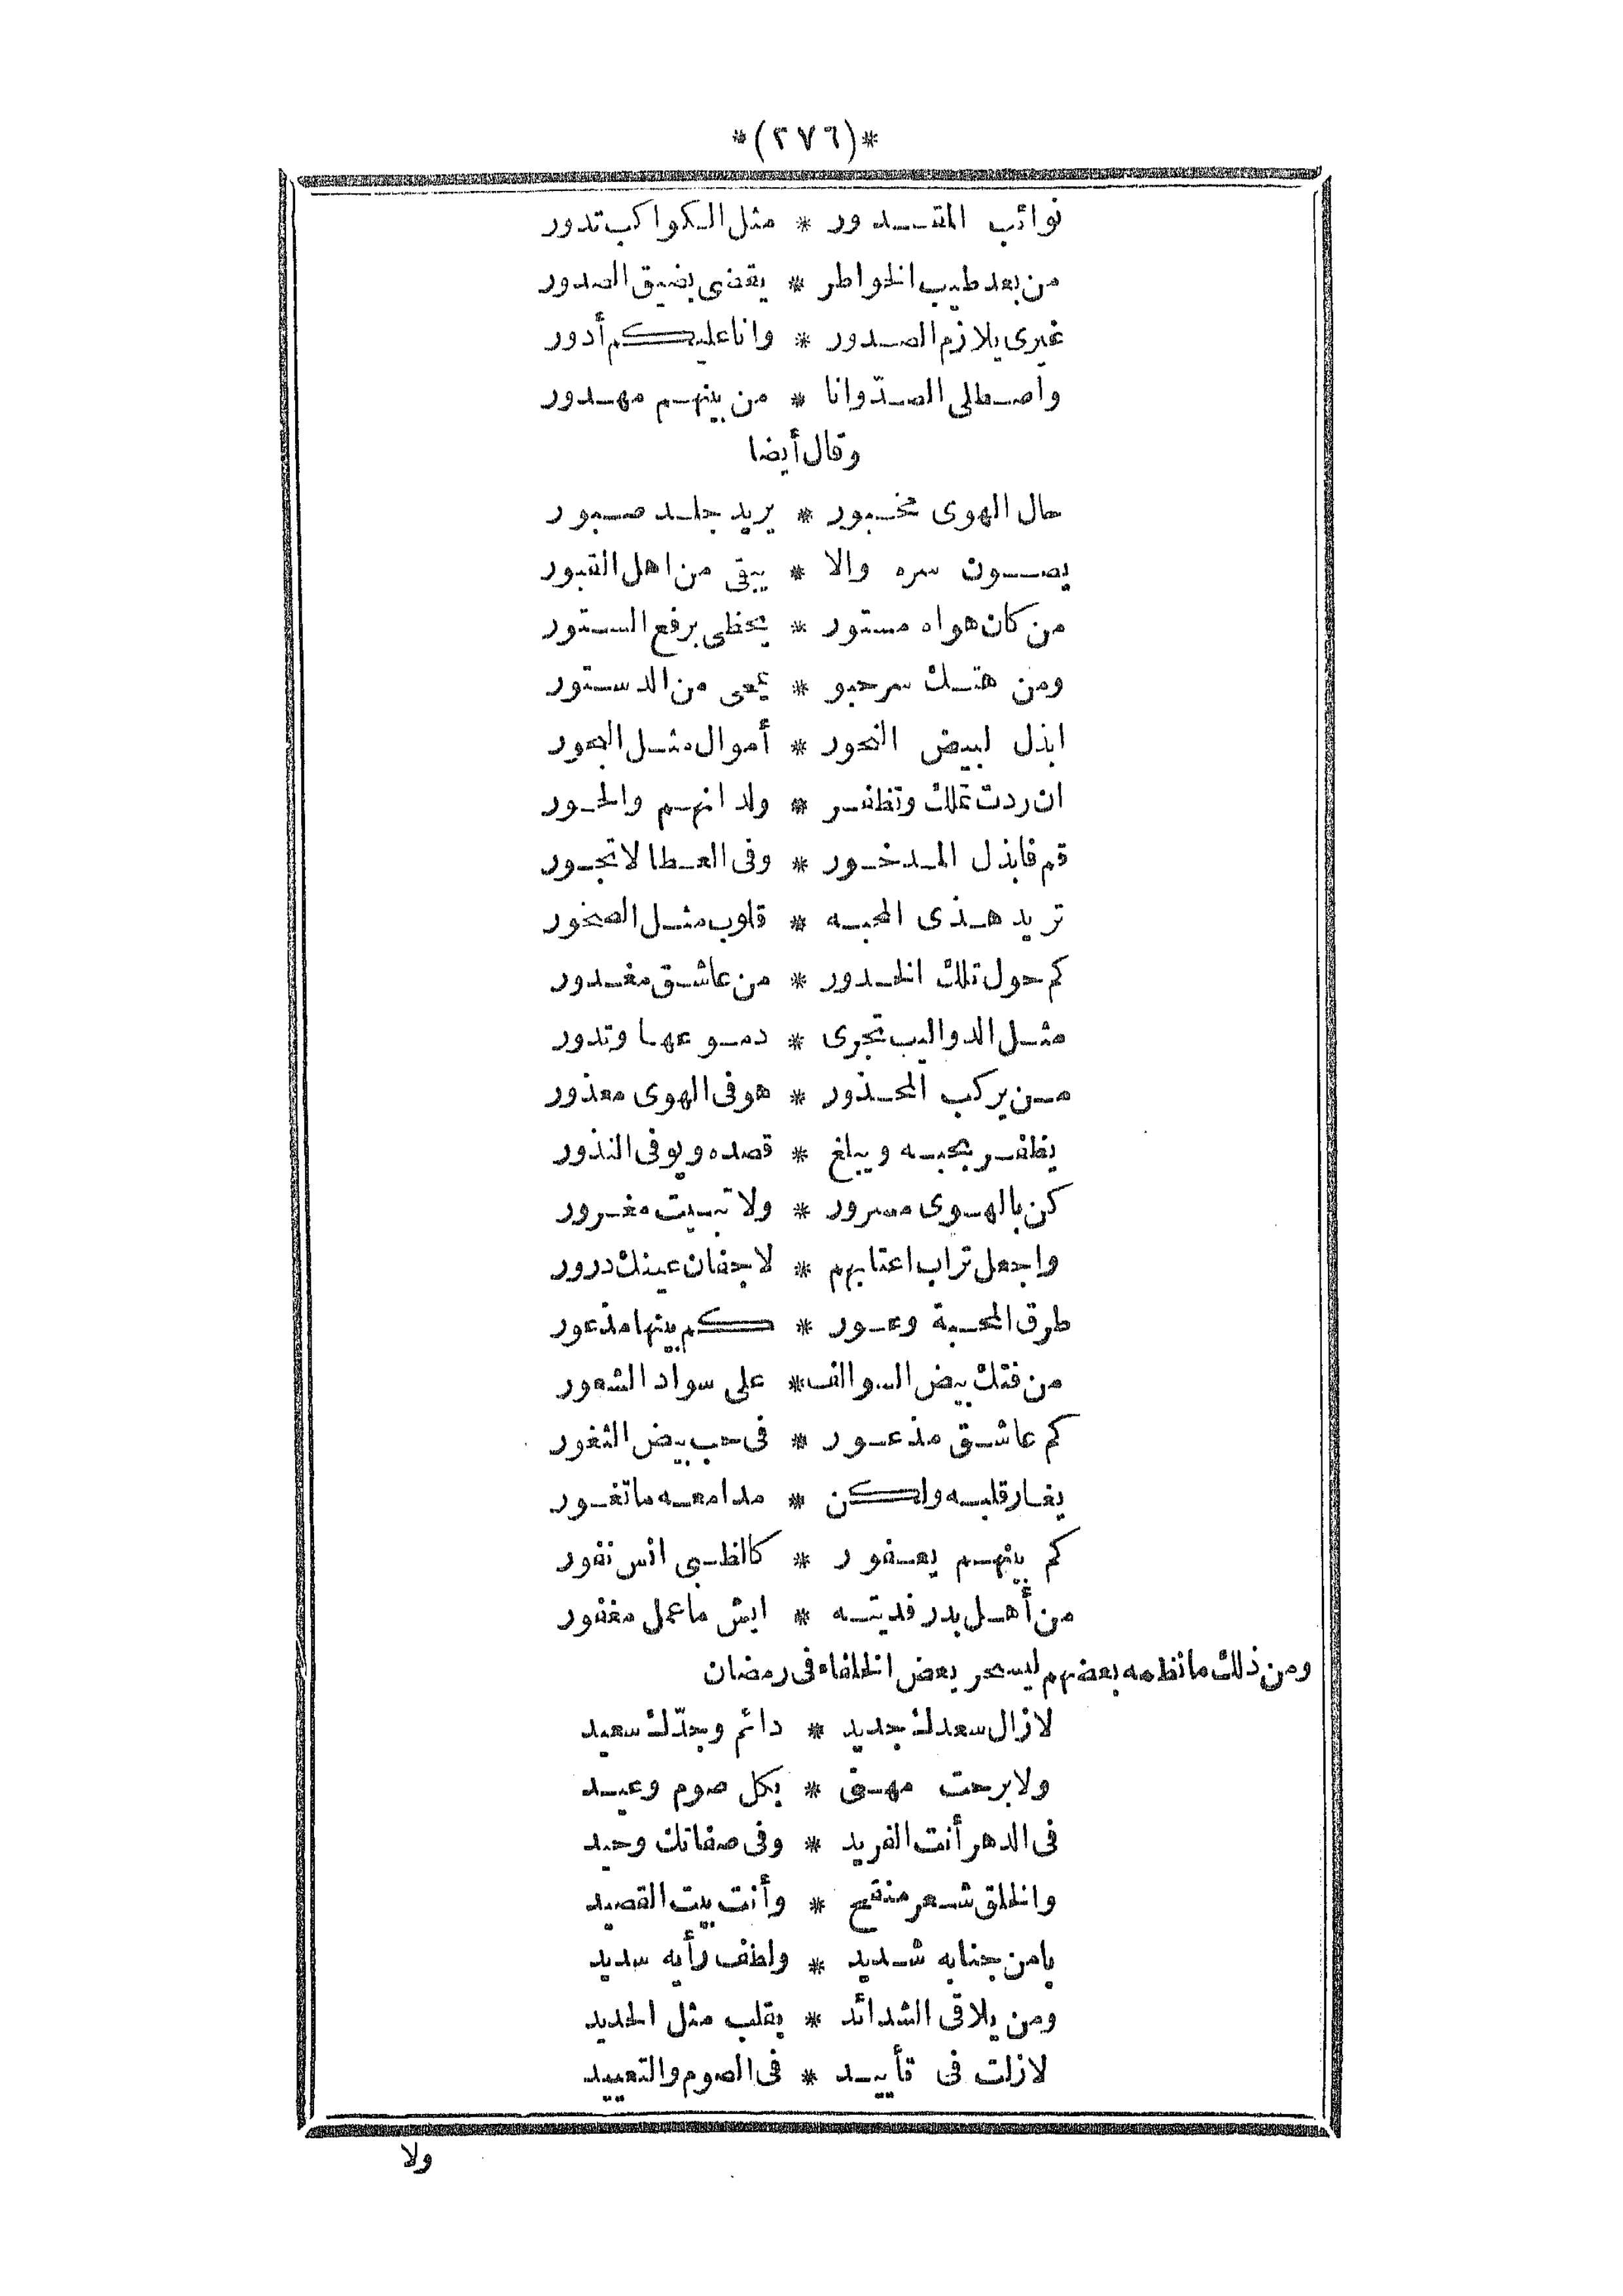 *(٢٧٦)*
نوائب المقدور * مثل الكواكب تدور
من بعد طيب الخواطر * يقضى بضيق الصدور
غيرى يلازم الصدور * وانا عليكم أدور
واصطلى الصدّ وانا * من بينهم مهدور
وقال أيضا
حال الهوى مخبور * يريد جلد صبور
يصون سره والا * يبقى من اهل القبور
من كان هواه مستور * يحظى برفع الستور
ومن هتك سر حبو * يمحى من الدستور
ابذل لبيض النحور * أموال مثل البحور
ان ردت تملك وتظفر * ولدانهم والحور
قم فابذل المدخور * وفى العطا لا تجور
تريد هذى المحبه * قلوب مثل الصخور
كم حول تلك الخدور * من عاشق مغدور
مثل الدواليب تجرى * دموعها وتدور
من يركب المحذور * هو فى الهوى معذور
يظفر بحبه ويبلغ * قصده ويوفى النذور
كن بالهوى مسرور * ولا تبيت مغرور
واجعل تراب اعتابهم * لاجفان عينك درور
طرق المحبة وعور * كم بينها مذعور
من فتك بيض السوالف * على سواد الشعور
كم عاشق مذعور * فى حب بيض الثغور
يغار قلبه ولكن * مدامعه ما تغور
كم بينهم يعفور * كالظبى انس نفور
من أهل بدر فديته * ايش ما عمل مغفور
ومن ذلك ما نظمه بعضهم ليسحر بعض الخلفاء فى رمضان
لا زال سعدك جديد * دائم وجدّك سعيد
ولا برحت مهنى * بكل صوم وعيد
فى الدهر أنت الفريد * وفى صفاتك وحيد
والخلق شعر منقح * وأنت بيت القصيد
يا من جنابه شديد * ولطف رأيه سديد
ومن يلاقى الشدائد * بقلب مثل الحديد
لا زلت فى تأييد * فى الصوم والتعييد
ولا